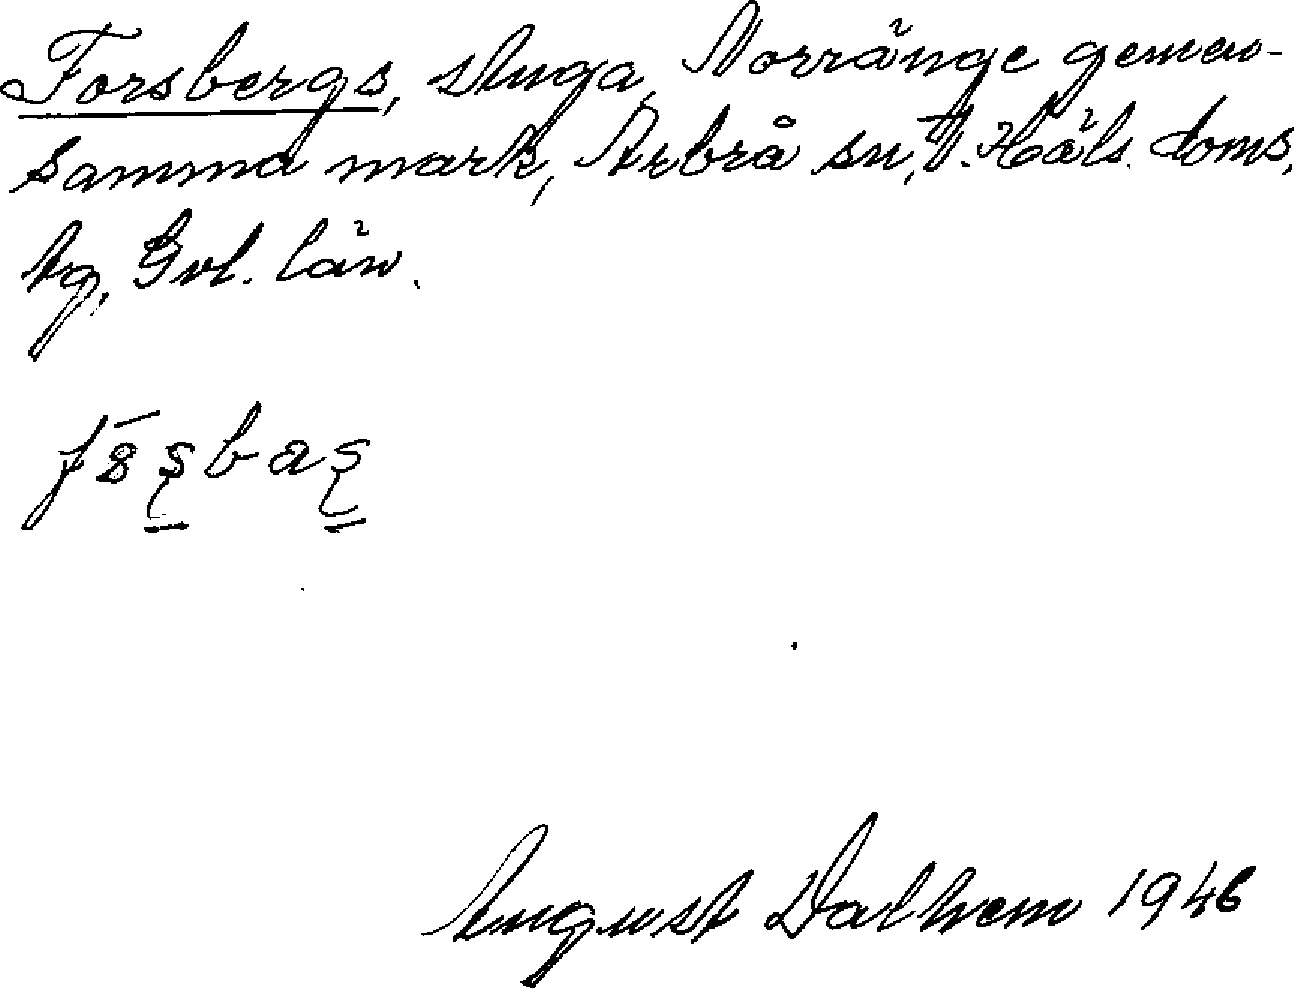 Forsbergs, stuga, Norränge gemen-
samma mark, Arbrå sn, V. Häls. doms.
tg, Gvl. län.
August Dalhem 1946